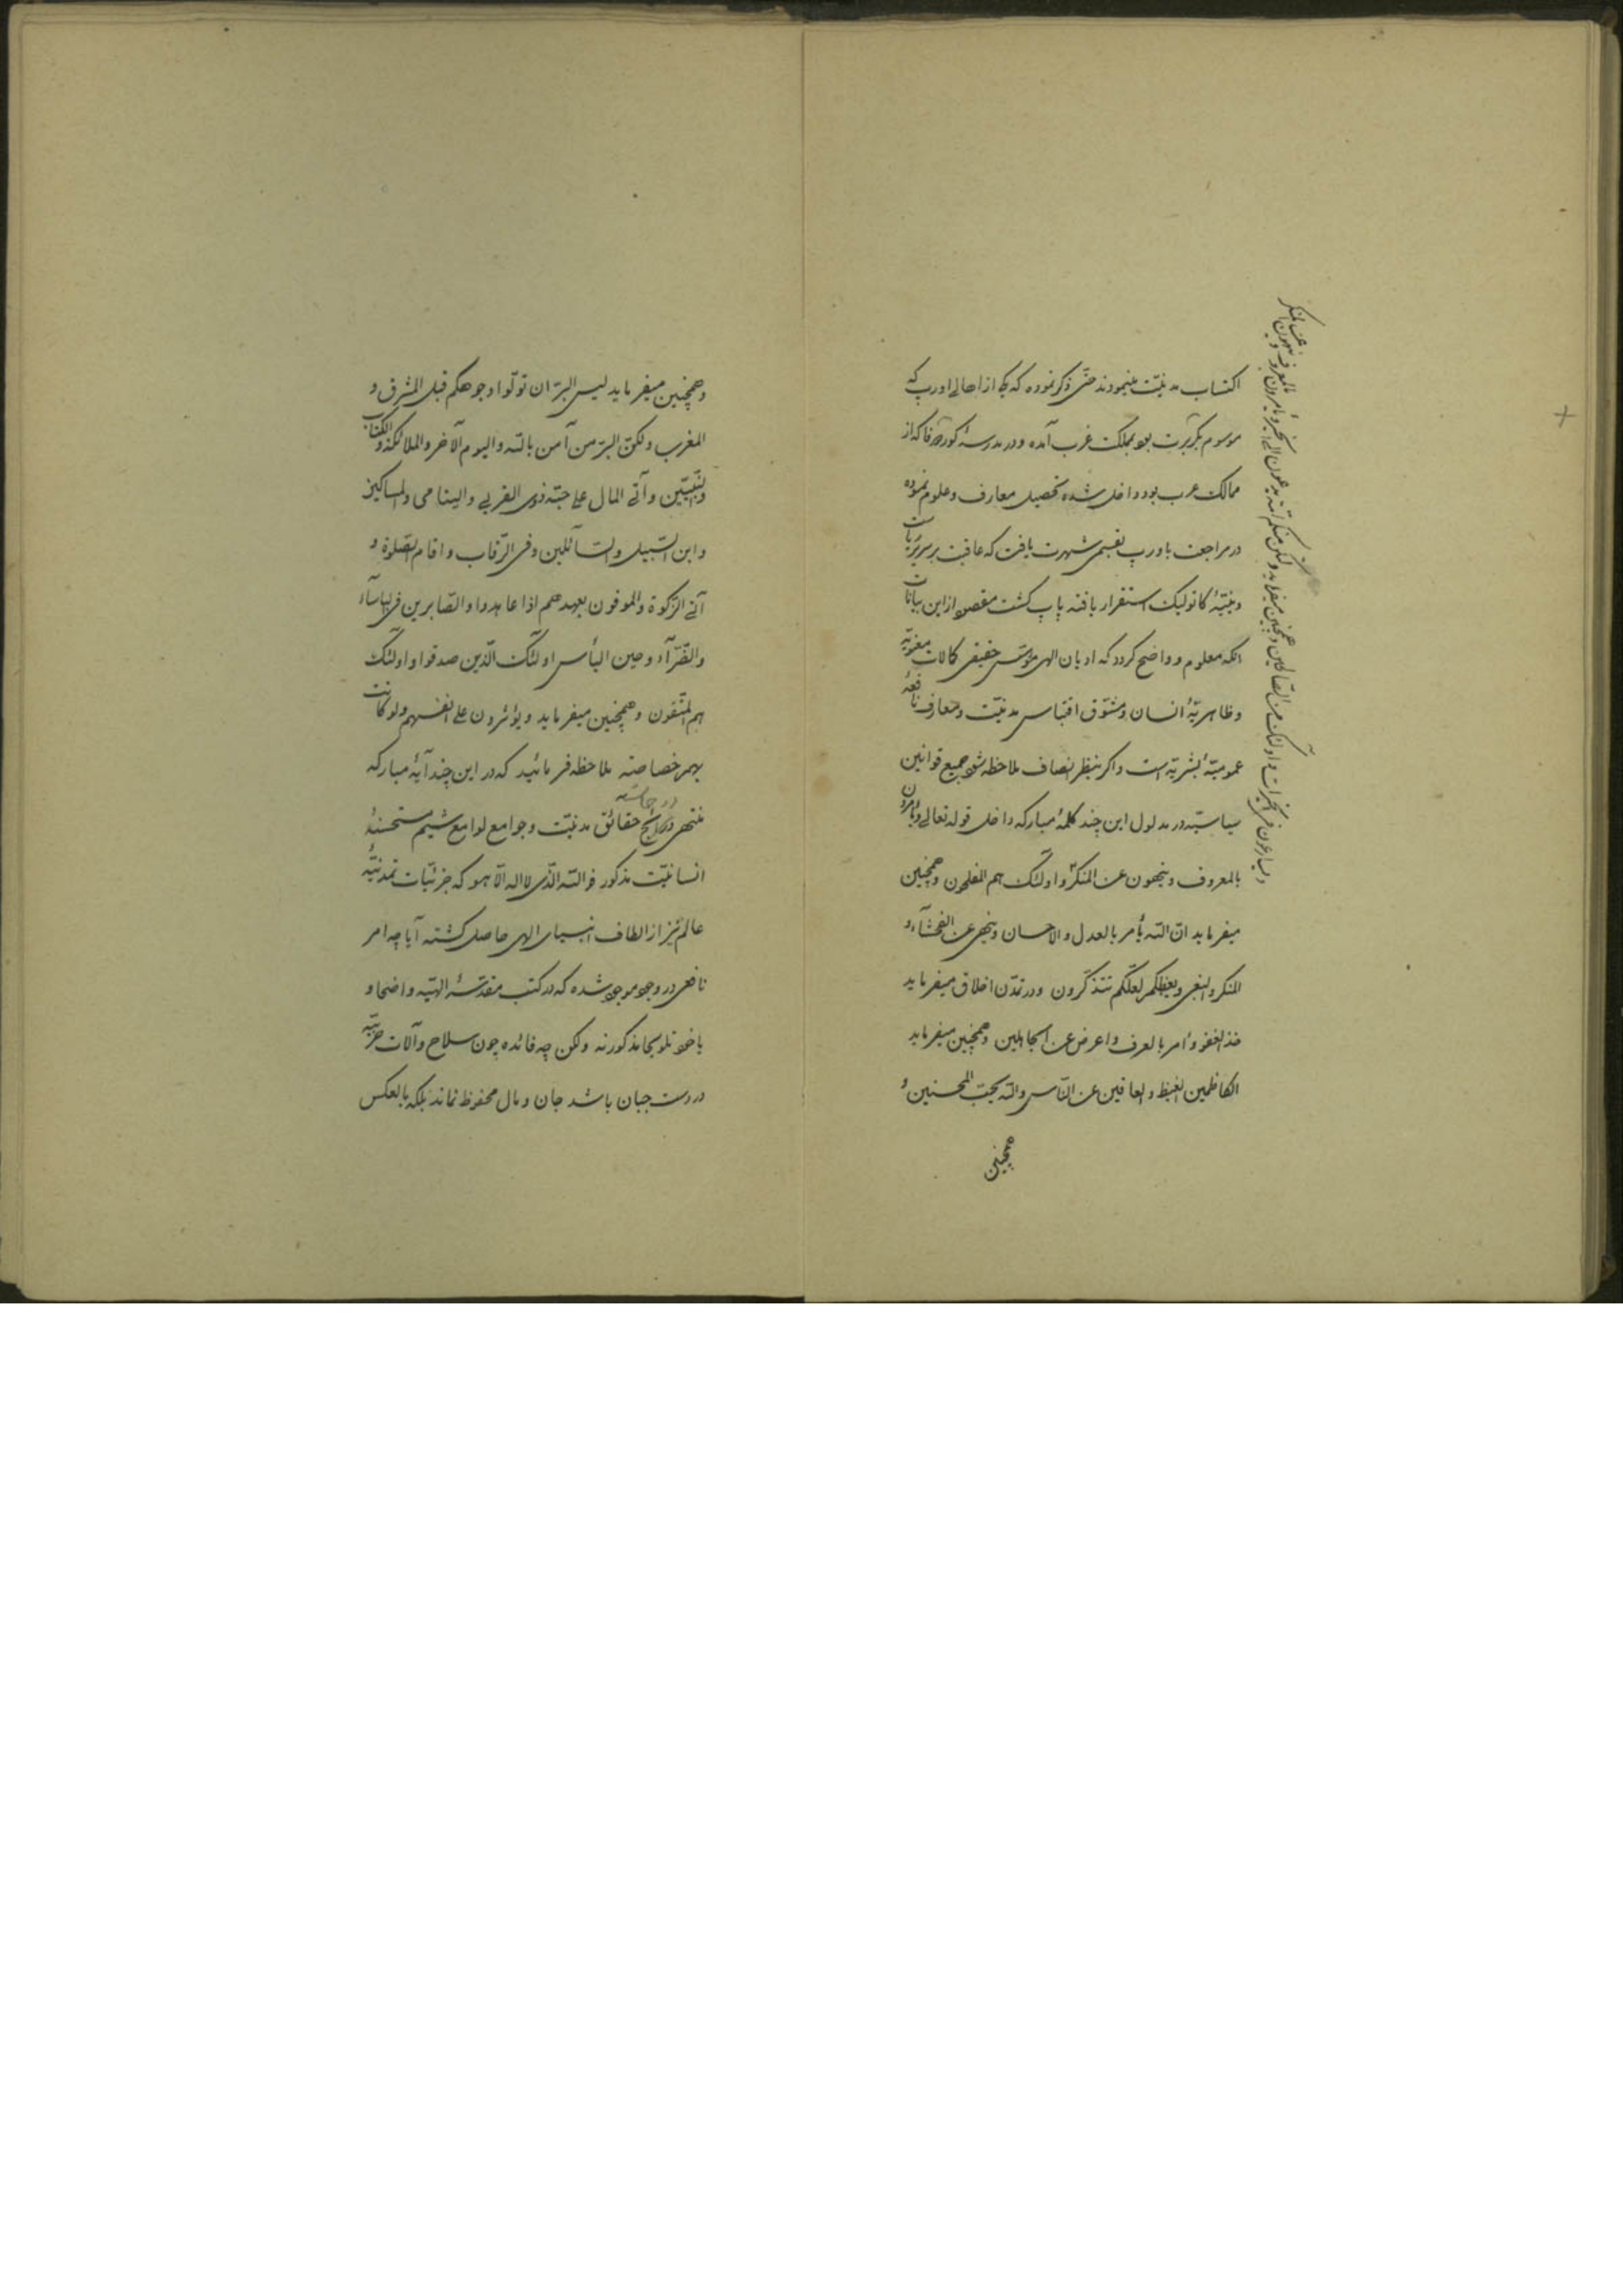 اکتساب مدنیّت مینمودند حتّی ذکر نموده که یکی از اهالی اورپ که
موسوم بکربرت بود بمملکت غرب آمده و در مدرسهٔ کوردوفا که از
ممالک عرب بود داخل شده تحصیل معارف و علوم نموده
در مراجعت باورپ بقسمی شهرت یافت که عاقبت بر سریر ریاست
دینیّهٔ کاتولیک استقرار یافته پاپ کشت مقصود از این بیانات
انکه معلوم و واضح کردد که ادیان الهی مؤسّس حقیقی کمالات معنویّه
و ظاهریّهٔ انسان و مشوّق اقتباس مدنیّت و معارف نافعهٔ
عمومیّهٔ بشریّه است و اکر بنظر انصاف ملاحظه شود جمیع قوانین
سیاسیّه در مدلول این چند کلمهٔ مبارکه داخل قوله تعالی و یأمرون
بالمعروف و ینهون عن المنکر و اولئک هم المفلحون و همچنین
میفرماید انّ اللّه یأمر بالعدل و الاحسان و ینهی عن الفحشآء و
المنکر و البغی و یعظکم لعلّکم تتذکّرون و در تمدّن اخلاق میفرماید
خذ العفو و أمر بالعرف و اعرض عن الجاهلین و همچنین میفرماید
الکاظمین الغیظ و العافین عن النّاس و اللّه یحبّ المحسنین و
همچنین
و یسارعون فی الخیرات و اولئک من الصّالحین و همچنین میفرماید و لتکن منکم امّة یدعون الی الخیر و یأمرون بالمعروف و ینهون عن المنکر
و همچنین میفرماید لیس البرّ ان تولّوا وجوهکم قبل المشرق و
المغرب و لکنّ البرّ من آمن باللّه و الیوم الآخر و الملائکة و الکتاب
و النّبیّین و آتی المال علی حبّه ذوی القربی و الیتامی و المساکین
و ابن السّبیل و السّآئلین و فی الرّقاب و اقام الصّلوة و
آتی الزّکوة و الموفون بعهدهم اذا عاهدوا و الصّابرین فی البأسآء
و الضّرّآء و حین البأس اولئک الّذین صدقوا و اولئک
هم المتّقون و همچنین میفرماید و یؤثرون علی انفسهم و لو کانت
بهم خصاصة ملاحظه فرمائید که در این چند آیهٔ مبارکه
منتهی مدارج حقائق مدنیّت و جوامع لوامع شیم مستحسنهٔ
انسانیّت مذکور فواللّه الّذی لا اله الّا هو که جزئیّات تمدّنیّهٔ
عالم نیز از الطاف انبیای الهی حاصل کشته آیا چه امر
نافعی در وجود موجود شده که در کتب مقدّسهٔ الهیّه واضحا و
یا خود تلویحا مذکور نه ولکن چه فائده چون سلاح و آلات حربیّه
در دست جبان باشد جان و مال محفوظ نماند بلکه بالعکس